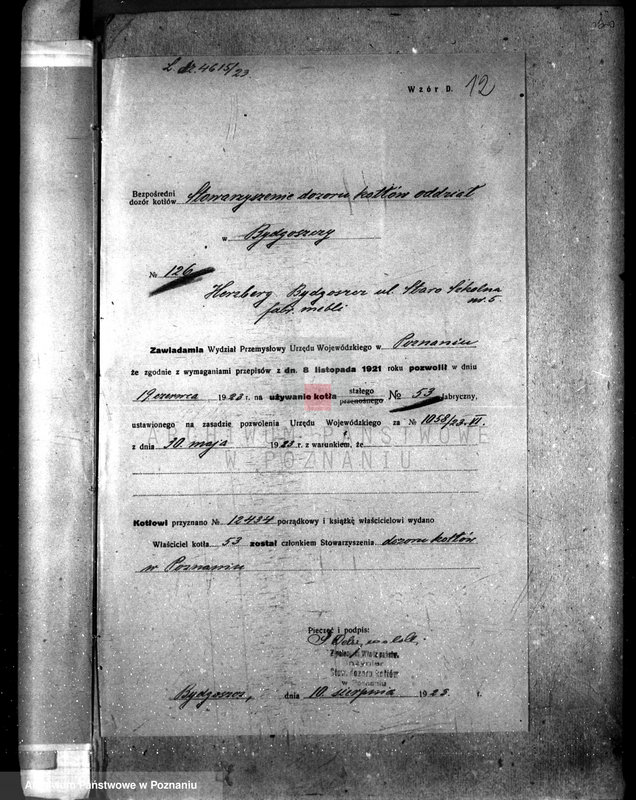 L dz. 4615/23
Wzór D. 12
Bezpośredni dozór kotłów Stowarzyszenie dozoru kotłów oddział
w Bydgoszczy
№ 126
Herzberg Bydgoszcz ul. Staro Szkolna nr. 5
fabr. mebli
Zawiadamia Wydział Przemysłowy Urzędu Wojewódzkiego w Poznaniu
że zgodnie z wymaganiami przepisów z dn. 8 listopada 1921 roku pozwolił w dniu
19 czerwca 1923 r. na używanie kotła stałego przenośnego № 53 fabryczny,
ustawionego na zasadzie pozwolenia Urzędu Wojewódzkiego za № 1058/23 VI.
z dnia 30 maja 1923 r. z warunkiem, że
ARCHIWUM PAŃSTWOWE
W POZNANIU
Kotłowi przyznano № 12434 porządkowy i książkę właścicielowi wydano
Właściciel kotła 53 został członkiem Stowarzyszenia dozoru kotłów
w Poznaniu
Pieczęć i podpis:
Inżynier
Stow. dozoru kotłów
w Poznaniu
Bydgoszcz, dnia 10. sierpnia 1923. r.
Archiwum Państwowe w Poznaniu